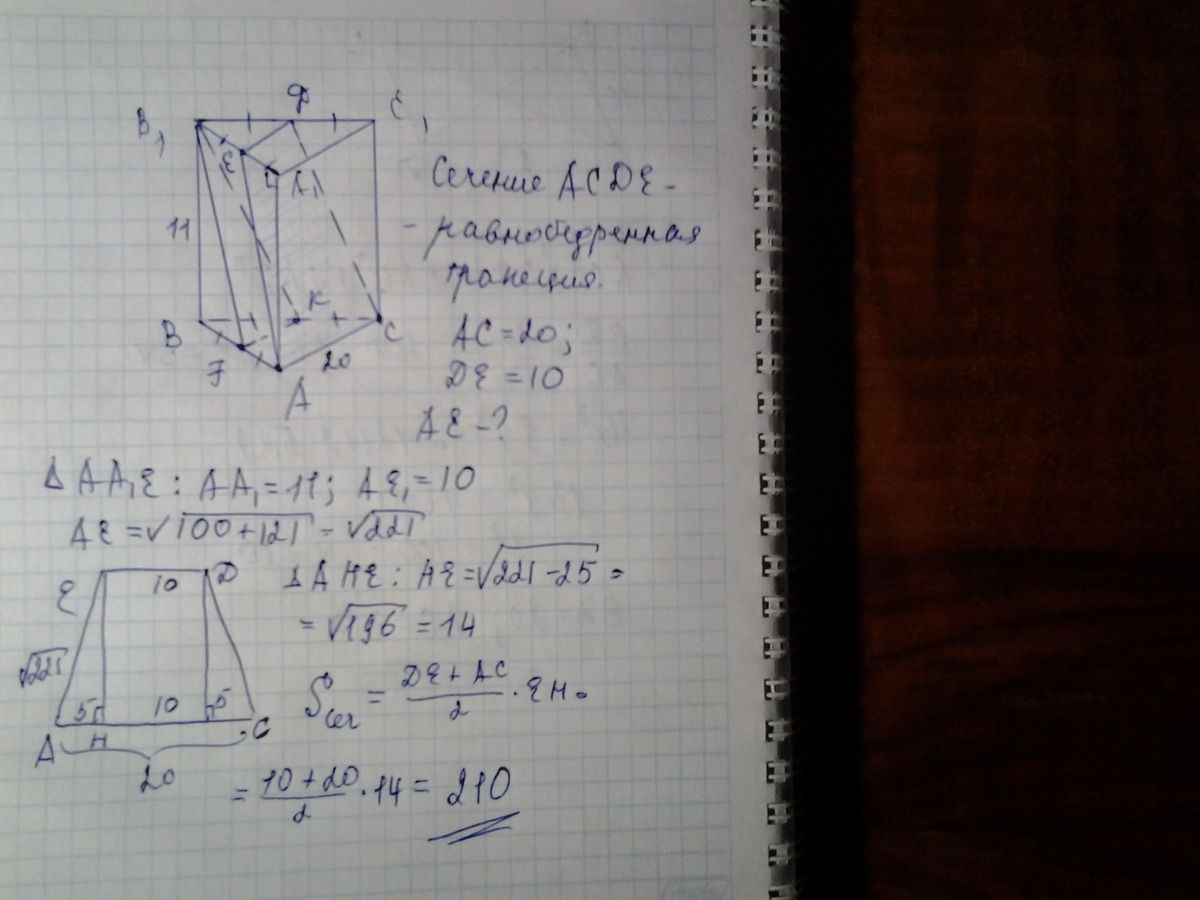 B₁ D C₁
E A₁
11
B K C
F 20
A
Сечение ACDE -
- равнобедренная
трапеция.
AC = 20;
DE = 10
AE - ?
Δ AA₁E : AA₁ = 11; AE₁ = 10
AE = √100+121 = √221
E 10 D
√221
5 10 5
A H C
20
Δ AHE : HE = √221-25 =
= √196 = 14
Sсеч = (DE + AC)/2 · EH =
= (10+20)/2 · 14 = 210